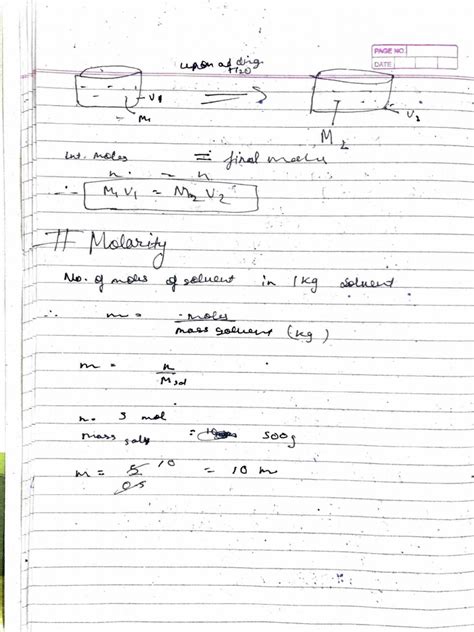 PAGE NO.
DATE
upon adding
H2O
V1
M1
V2
M2
Int. moles = final moles
n = n
∴ M1V1 = M2V2
# Molarity
No. of moles of solvent in 1kg solvent
∴ m = moles
mass solvent (kg)
m = n
Msol
n = 5 mol
mass solv = 500g
m = 5 10 = 10 m
0.5